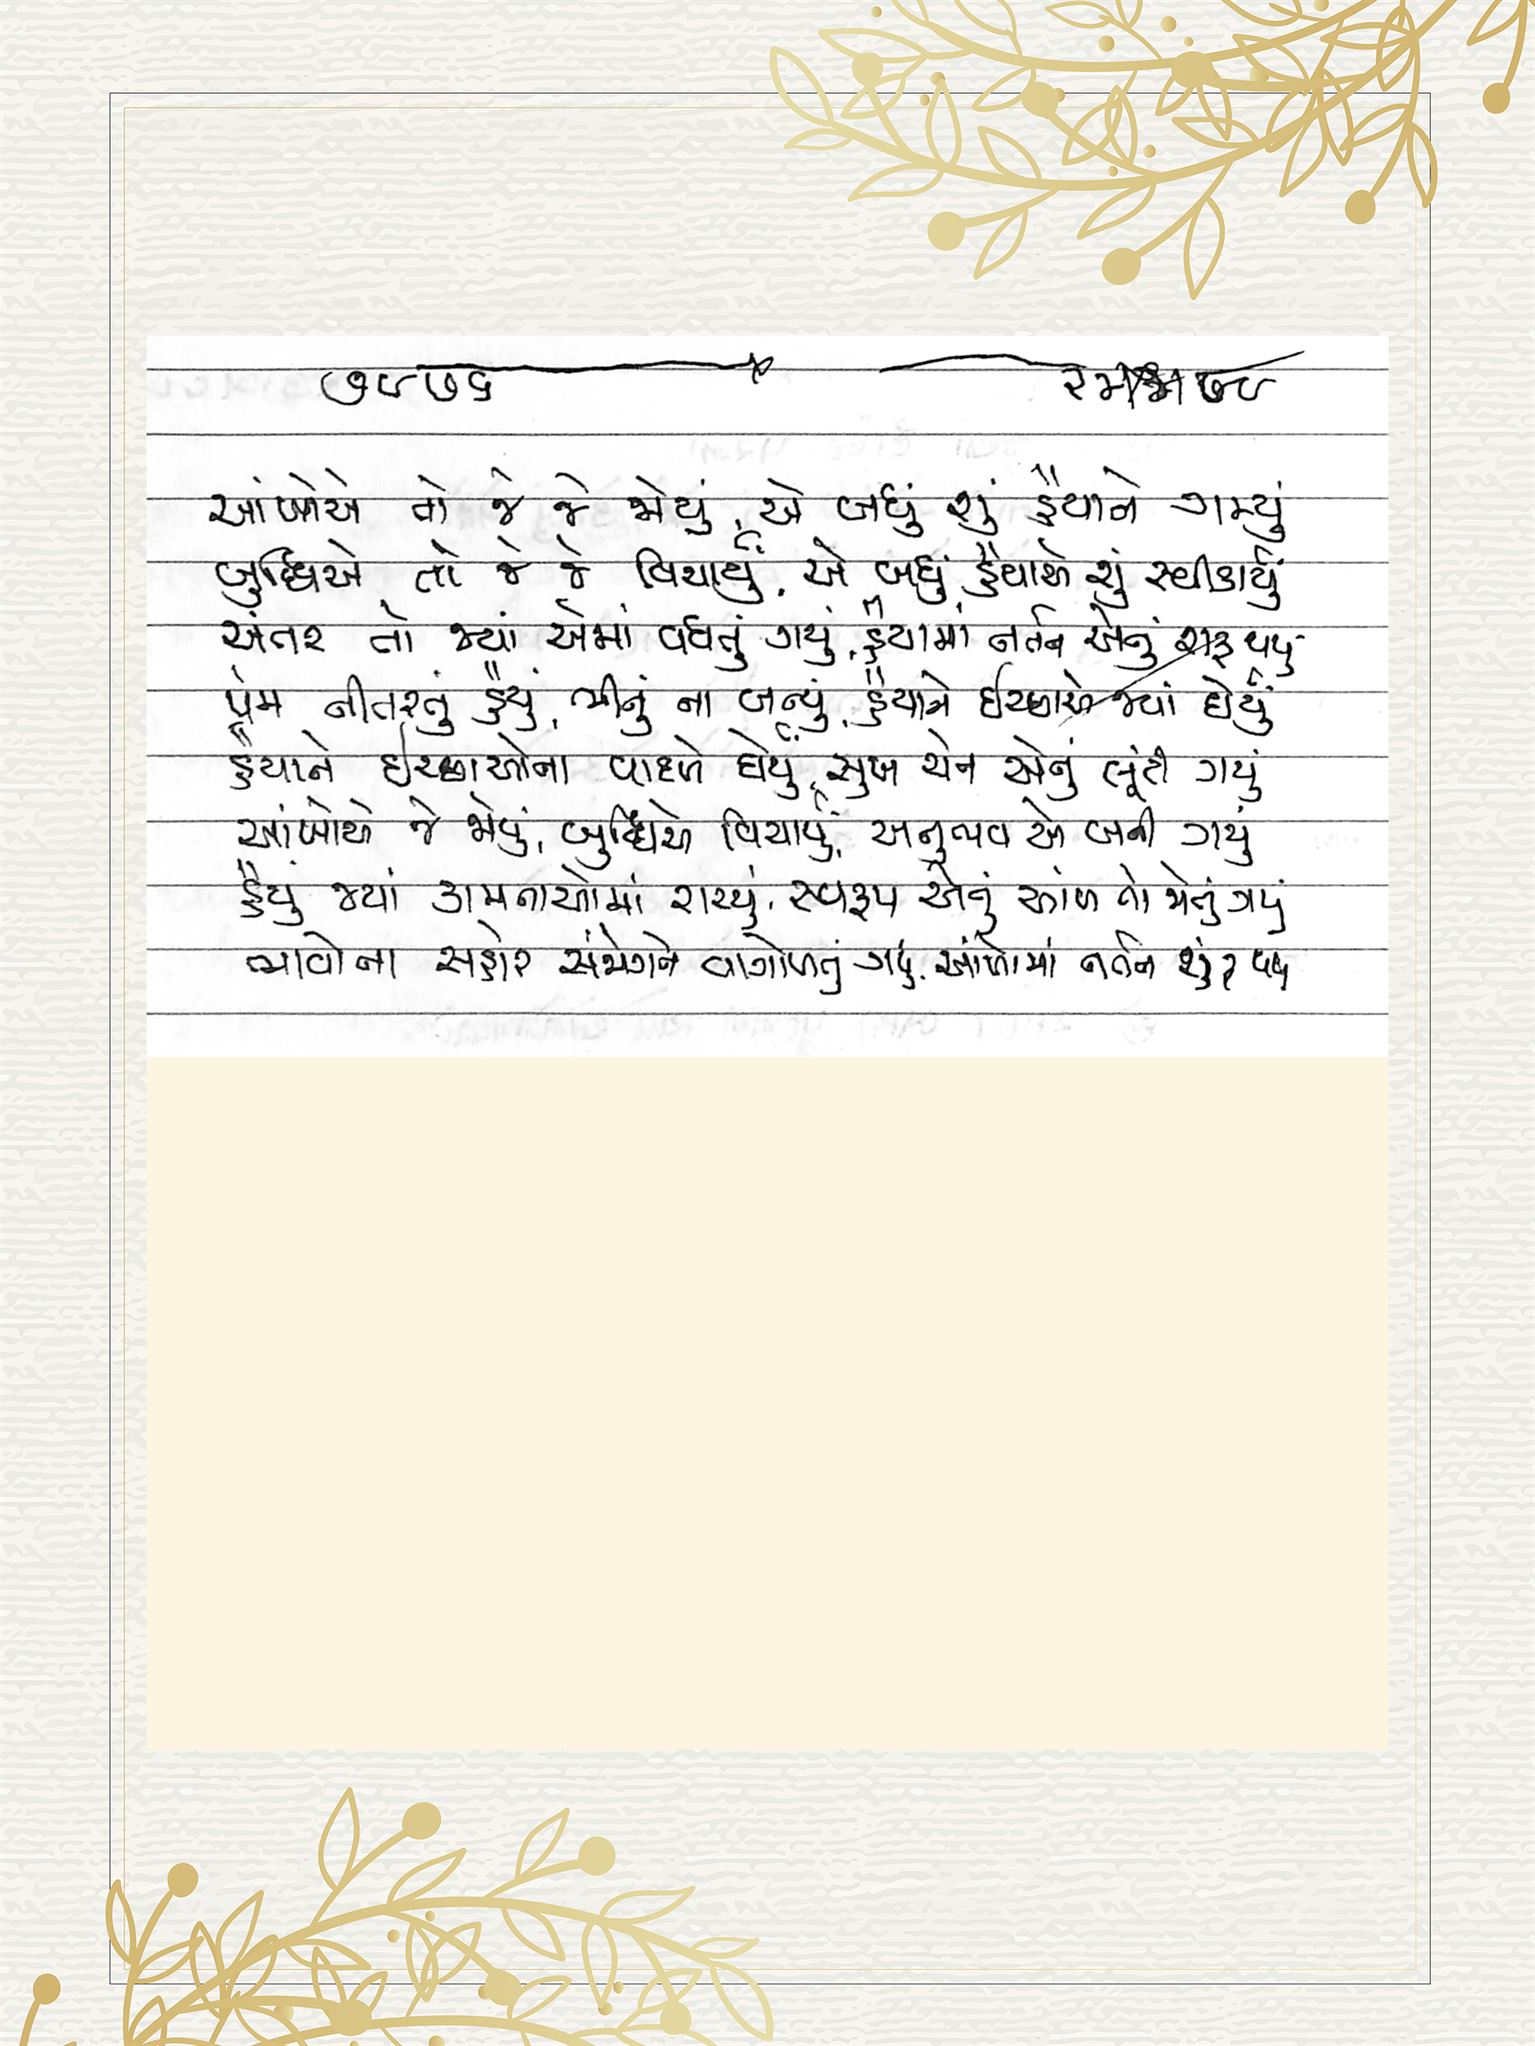 ૭૮૭૬
આંખોએ તો જે જે જોયું, એ બધું શું હૈયાને ગમ્યું
બુદ્ધિએ તો જે જે વિચાર્યું, એ બધું હૈયાએ શું સ્વીકાર્યું
અંતર તો જ્યાં એમાં વધતું ગયું, હૈયામાં નર્તન એનું શરૂ થયું
પ્રેમ નીતરતું હૈયું, ભીનું ના બન્યું, હૈયાને ઈચ્છાએ જ્યાં ઘેર્યું
હૈયાને ઈચ્છાઓના વાદળે ઘેર્યું, સુખ ચેન એનું લૂંટી ગયું
આંખોએ જે જોયું, બુદ્ધિએ વિચાર્યું, અનુભવ એ બની ગયું
હૈયું જ્યાં કામનાઓમાં રાચ્યું, સ્વરૂપ એનું આંખ તો જોતું ગયું
ભાવોના સહારે સંજોગને વાગોળતું ગયું, આંખોમાં નર્તન શરૂ થયું